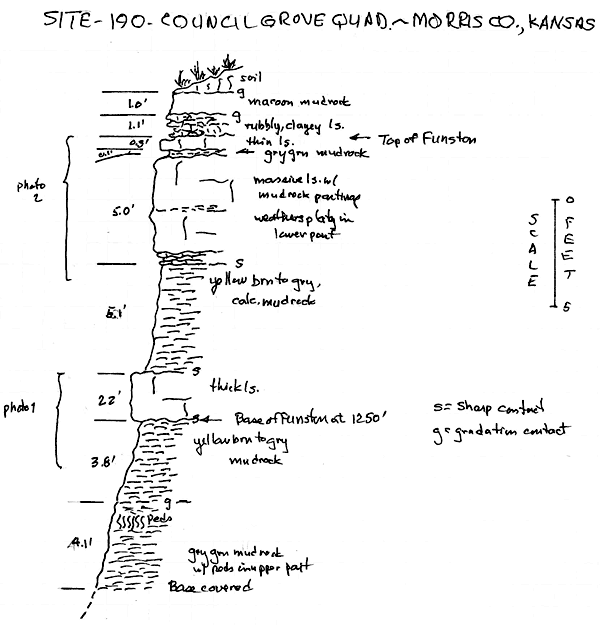 SITE-190-COUNCIL GROVE QUAD.~MORRIS CO., KANSAS
soil
g
1.0'
maroon mudrock
g
1.1'
rubbly, clayey ls.
0.5'
thin ls.
← Top of Funston
gry grn mudrock
photo
2
5.0'
massive ls. w/
mudrock partings
weathers platy in
lower part
s
yellow brn to gry,
calc. mudrock
5.1'
0
SCALE
FEET
5
s
photo 1
2.2'
thick ls.
s ← Base of Funston at 1250'
s = Sharp contact
g = gradation contact
yellow brn to gry
mudrock
3.8'
g
Peds
4.1'
gry grn mudrock
w/ peds in upper part
Base covered